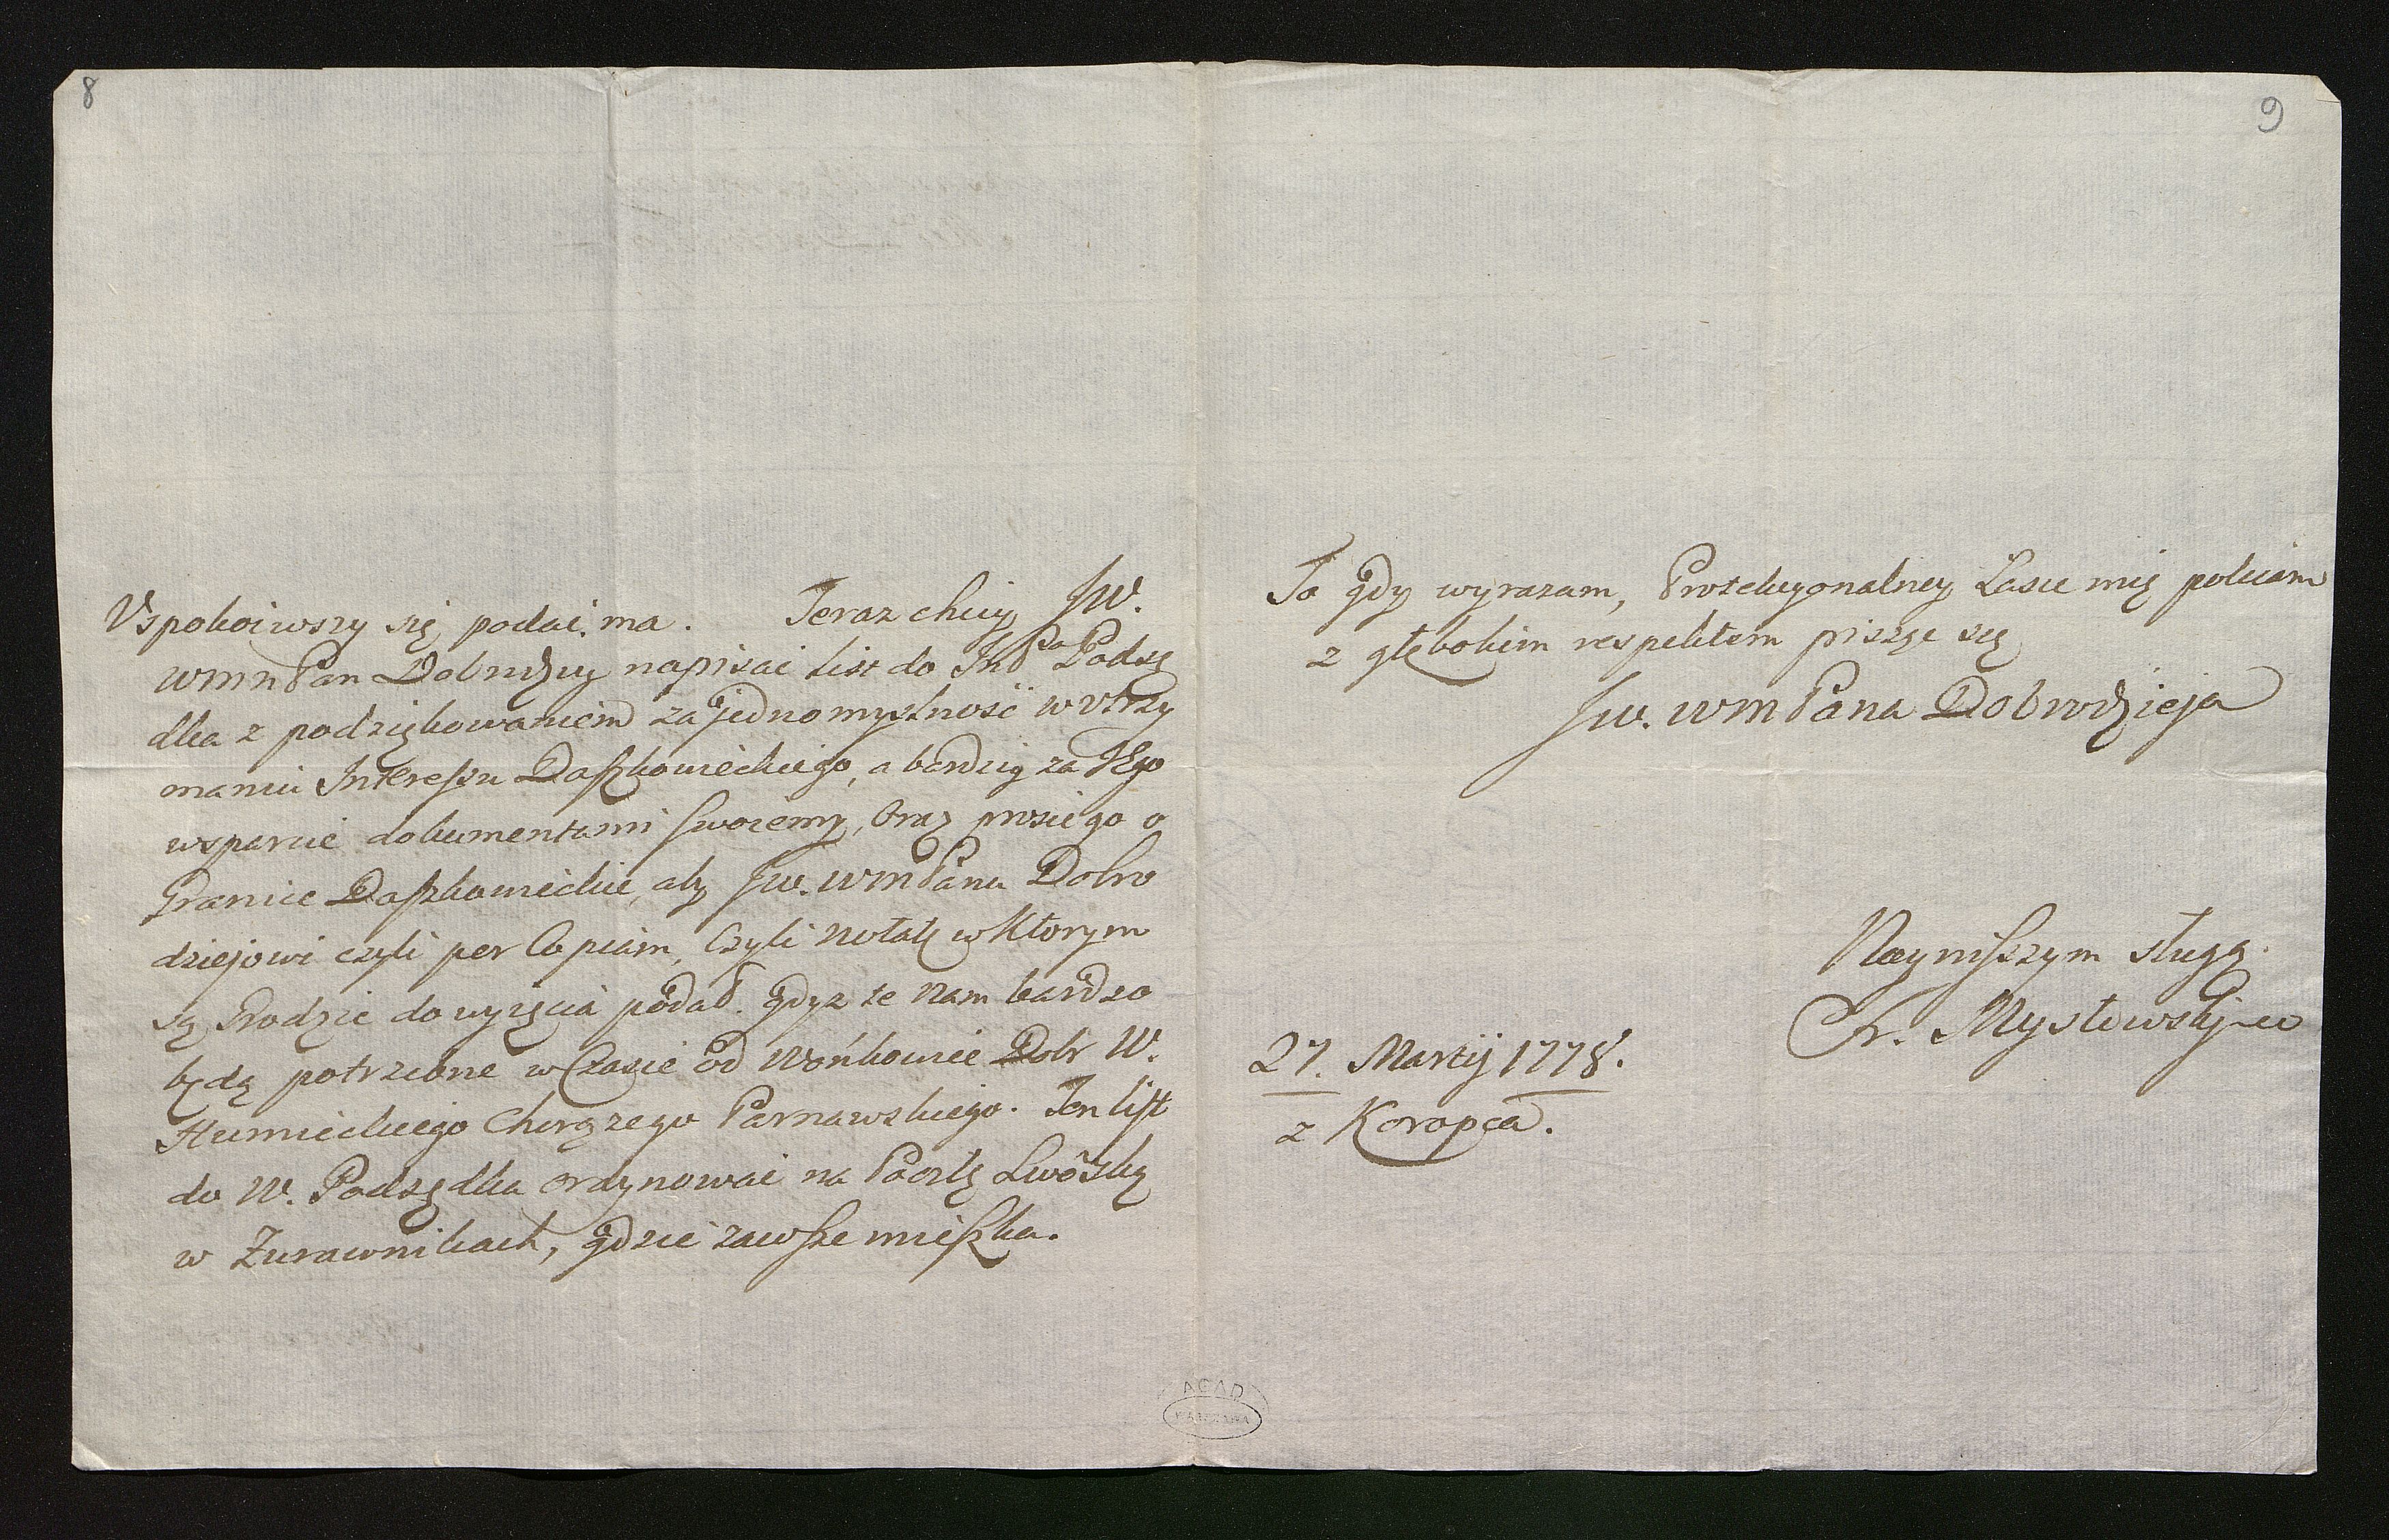 8
Uspokoiwszy się podać ma. Teraz chciej JW.
WMM Pan Dobrodziej napisać list do JMP Podsę
dka z podziękowaniem za jednomyślność w utrzy
maniu Interessu Daszkowieckiego, a bardziej za Jego
wsparcie dokumentami swoiemy, Oraz prosić go o
Granice Daszkowieckie, aby JW. WMPanu Dobro
dziejowi czyli per Copiam, czyli Notatę w Ktorym
są Grodzie do wyięcia podał. gdyż te Nam bardzo
będą potrzebne w Czasie od Wońkowiec Dobr W.
Humieckiego Chorązego Parnawskiego. Ten list
do W. Podsędka ordynować na Pocztę Lwôską
w Zurawnikach, gdzie zawsze mieszka.
9
To gdy wyrazam, Protekcyonalney Łasce mię polecam
z głębokim respektem piszęc się
JW. WMPana Dobrodzieja
Nayniszszym sługą
Fr. Mysłowskj
27. Martij 1778.
z Koropca.
AGAD
WARSZAWA